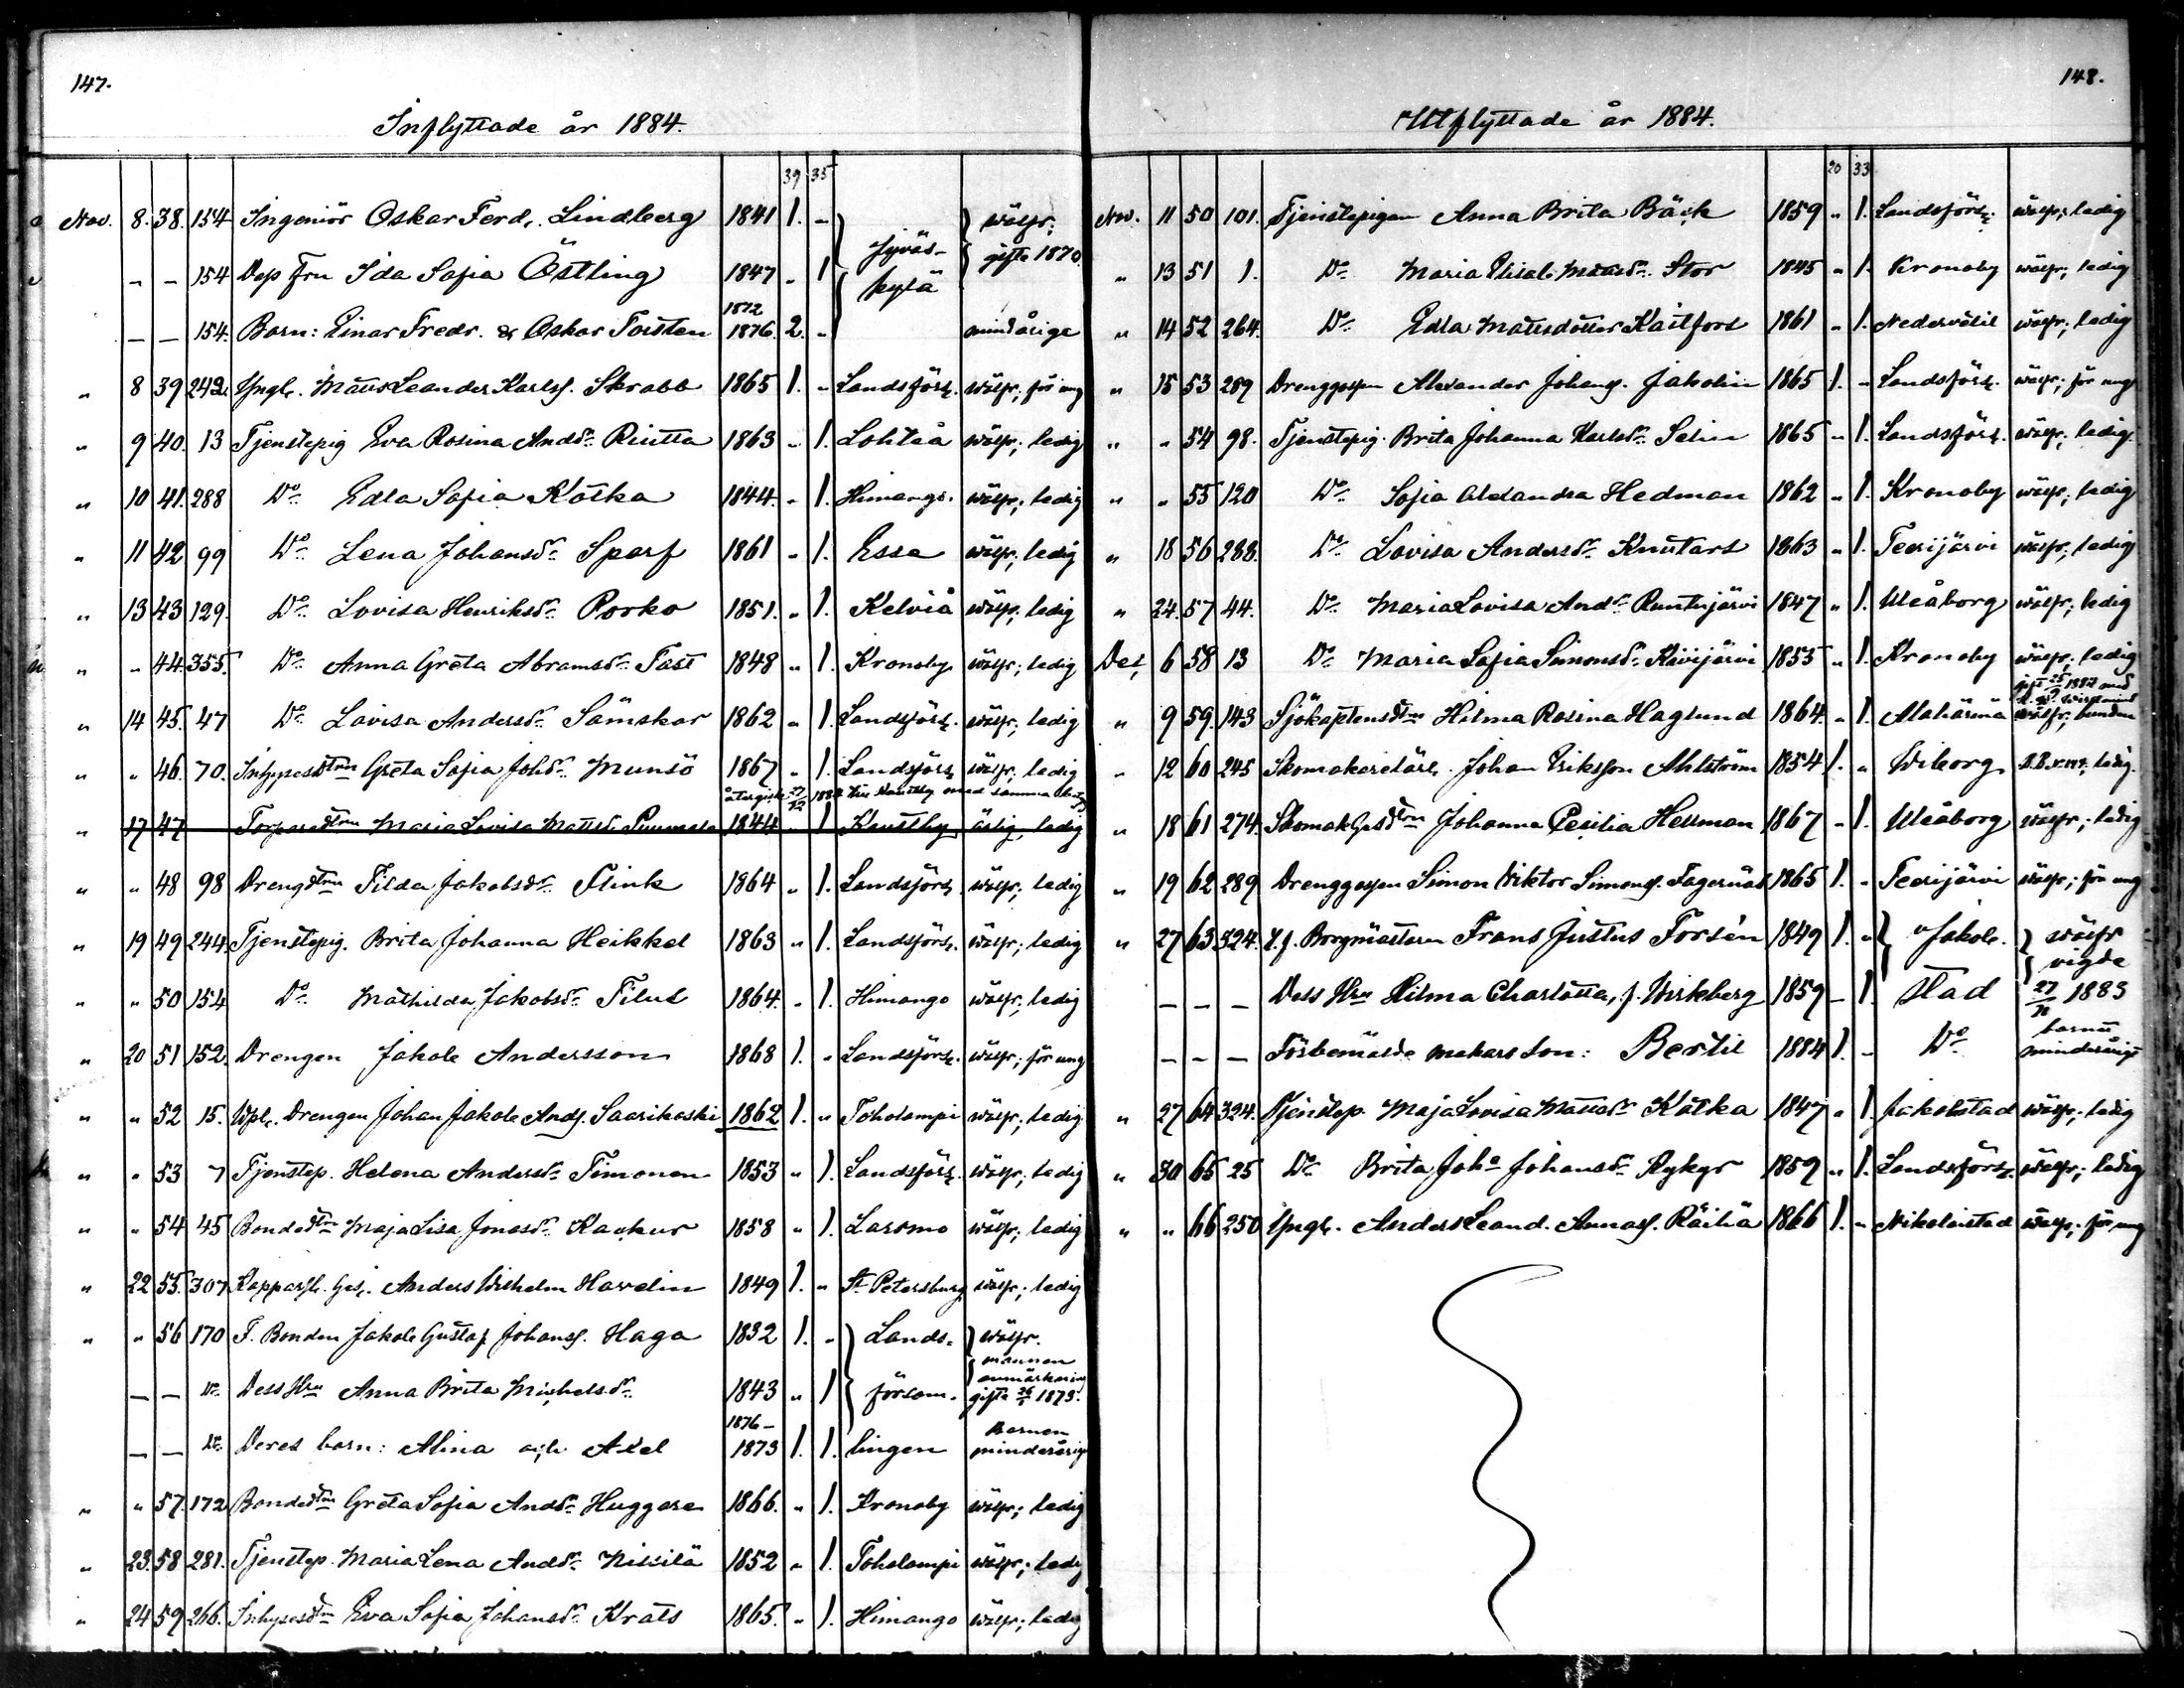 147.
Inflyttade år 1884.
39 35
Nov. 8. 38. 154 Ingeniör Oskar Ferd. Lindberg 1841 1. - Jyväs- wälfr;
gifte 1870.
- - 154 Dess Fru Ida Sofia Östling 1847 „ 1 kylä
1872
- - 154. Barn: Einar Fredr. & Oskar Torsten 1876. 2. „ mindåriga
„ 8 39 242. Yngl. Matts Leander Karlsf. Skrabb 1865 1. „ Landsförs. wälfr; för ung
„ 9 40. 13 Tjenstepig Eva Rosina Andsdr. Riutta 1863 „ 1. Lohteå wälfr; ledig
„ 10 41. 288 Do Edla Sofia Kotka 1844. „ 1. Himango. wälfr; ledig
„ 11 42 99 Do Lena Johansdr. Sparf 1861 „ 1. Esse wälfr; ledig
„ 13 43 129. Do Lovisa Henriksdr. Porko 1851. „ 1. Kelviå wälfr; ledig
„ „ 44. 355. Do Anna Greta Abramsdr. Fast 1848 „ 1. Kronoby wälfr; ledig
„ 14 45. 47 Do Lovisa Andersdr. Sämskar 1862 „ 1. Landsförs. wälfr; ledig
„ „ 46. 70. Inhysesdtrn Greta Sofia Johdr. Munsö 1867 „ 1. Landsförs wälfr; ledig
återgick 27/12 1884 till Kaustby med samma betyg
„ 17 47 Torparedtrn Maria Lovisa Mattsd. Puumala 1844 „ 1 Kaustby ärlig, ledig
„ „ 48 98 Drengdtrn Tilda Jakobsdr. Flink 1864 „ 1. Landsförs wälfr; ledig
„ 19 49 244. Tjenstepig. Brita Johanna Heikkel 1863 „ 1. Landsförs. wälfr; ledig
„ „ 50 154 Do Mathilda Jakobsdr. Tilus 1864. „ 1. Himango wälfr; ledig
„ 20 51 152. Drengen Jakob Andersson 1868 1. „ Landsförs. wälfr; för ung
„ „ 52 15. Drengen Johan Jakob Andf. Saarikoski 1862 1. „ Toholampi wälfr; ledig
„ „ 53 7 Tjenstep. Helena Andersdr. Timonen 1853 „ 1. Landsförs. wälfr; ledig
„ „ 54 45 Bondedtrn Maja Lisa Jonasdr. Kackur 1858 „ 1. Larsmo wälfr; ledig
„ 22 55. 307 Kopparsl. Ges. Anders Wilhelm Havelin 1849 1. „ St. Petersburg wälfr; ledig
„ „ 56 170 F. Bonden Jakob Gustaf Johansf. Haga 1832 1. „ Lands- wälfr.
mannen
anmärkning
- - Do Dess Hru Anna Brita Michelsdr. 1843 „ 1 försam- gifte 26/1 1873.
1876 - Barnen
- - Do Deras barn: Alina och Axel 1873 1. 1. lingen minderåriga
„ „ 57. 172 Bondedtrn Greta Sofia Andsdr. Huggare 1866. „ 1. Kronoby wälfr; ledig
„ 23. 58 281. Tjenstep. Maria Lena Andsdr. Niskilä 1852 „ 1. Toholampi wälfr; ledig
„ 24 59 266. Inhysesdtrn Eva Sofia Johansdr. Krats 1865. „ 1. Himango wälfr; ledig
148.
Utflyttade år 1884.
20 33
Nov. 11 50 101. Tjenstepigan Anna Brita Bäck 1859 „ 1. Landsförs. wälfr; ledig
„ 13 51 1. Do Maria Elisab. Mattsdr. Stor 1845 „ 1. Kronoby wälfr; ledig
„ 14 52 264. Do Edla Mattsdotter Kaitfors 1861 „ 1. Nedervetil wälfr; ledig
„ 15 53 289 Drenggossen Alexander Johansf. Jakolin 1865 1. „ Landsförs. wälfr; för ung
„ „ 54 98. Tjenstepig. Brita Johanna Karlsdr. Selin 1865 „ 1. Landsförs. wälfr; ledig.
„ „ 55 120 Do Sofia Alexandra Hedman 1862 „ 1. Kronoby wälfr; ledig
„ 18 56 288. Do Lovisa Andersdr. Knutars 1863 „ 1. Teerijärvi wälfr; ledig
„ 24. 57 44. Do Maria Lovisa Andr. Ruutujärvi 1847 „ 1. Uleåborg wälfr; ledig
Dec, 6 58 13 Do Maria Sofia Simonsdr. Kivijärvi 1855 „ 1. Kronoby wälfr; ledig
„ 9 59. 143 Sjökaptensdtrn Hilma Rosina Haglund 1864. „ 1. Alahärmä wälfr; bunden
„ 12 60 245 Skomakerilärl. Johan Eriksson Ahlström 1854 1. „ Wiborg ledig.
„ 18 61 274. Skomak. Gesdtrn Johanna Cecilia Hellman 1867 „ 1. Uleåborg wälfr; ledig
„ 19 62 289 Drenggossen Simon Viktor Simonsf. Fagernäs 1865 1. „ Teerijärvi wälfr; för ung
„ 27 63 324. V. f. Borgmästaren Frans Justus Forsén 1849 1. „ Jakob- wälfr
vigde
- - - Dess Hru Hilma Charlotta, f. Wirkberg 1859 - 1. stad 27/12 1883
barnet
- - - Förbemälde makars son: Bertil 1884 1. - Do minderårigt
„ 27 64 324. Tjenstep. Maja Lovisa Mattsdr. Kotka 1847 „ 1. Jakobstad wälfr; ledig
„ 30 65 25 Do Brita Joha Johansdr. Rykyr 1859 „ 1. Landsförs. wälfr; ledig
„ „ 66 250 Yngl. Anders Leand. Annasf. Räihä 1866 1. „ Nikolaistad wälfr; för ung